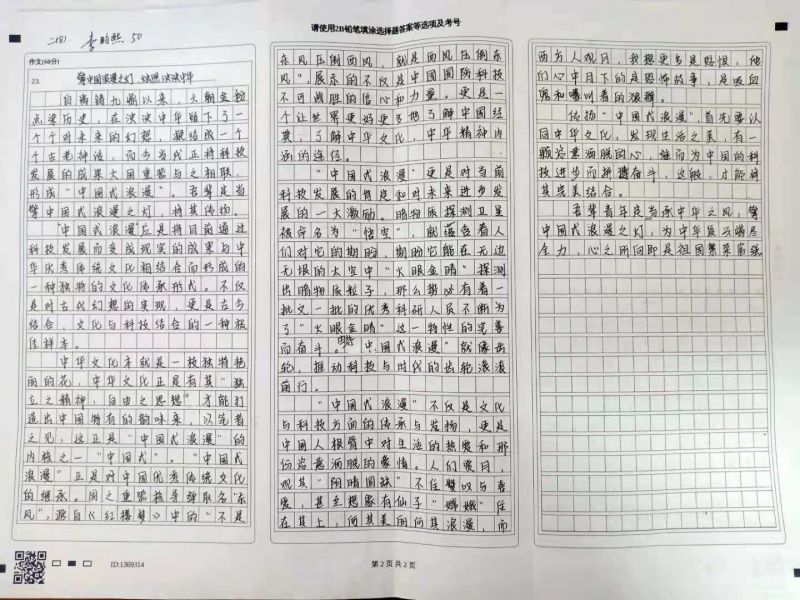 请使用2B铅笔填涂选择题答案等选项及考号
50
作文(60分)
23.
擎中国浪漫之灯，烛照泱泱中华
自禹铸九鼎以来，大朝金粉
点染历史，在泱泱中华留下了一
个个对未来的幻想，凝结成一个
个古老神话，而今当代正将科技
发展的成果大国重器与之相联，
形成“中国式浪漫”。吾辈定当
擎中国式浪漫之灯，将其传扬。
“中国式浪漫”左是将目前通过
科技发展而变成现实的成果与中
华优秀传统文化相结合而形成的
一种独特的文化传承形式。不仅
是对古代幻想的实现，更是古今
结合，文化与科技结合的一种极
佳样本。
中华文化本就是一枝独特艳
丽的花，中华文化正是有其“独
立之精神，自由之思想”才能打
造出中国特有的韵味来，以笔者
之见，这正是“中国式浪漫”的
内核之一“中国式”。“中国式
浪漫”正是对中国优秀传统文化
的继承。国之重器核导弹取名“东
风”，源自《红楼梦》中的“不是
东风压倒西风，就是西风压倒东
风”，展示的不仅是中国国防科技
不可战胜的信心和力量，更是一
个让世界更好更多地了解中国经
典，了解中华文化，中华精神内
涵的途径。
“中国式浪漫”更是对当前
科技发展的肯定和对未来进步发
展的一大激励。暗物质探测卫星
被命名为“悟空”，就蕴含着人
们对它的期盼，期盼它能在无边
无垠的太空中“火眼金睛”探测
出暗物质粒子，那么势必有着一
批又一批的优秀科研人员不断为
了“火眼金睛”这一特性的完善
而奋斗。“中国式浪漫”就像齿
轮，推动科技与时代的齿轮滚滚
前行。
“中国式浪漫”不仅是文化
与科技方面的传承与发扬，更是
中国人根骨中对生活的热爱和那
份恣意洒脱的豪情。人们爱月，
观其“阴晴圆缺”不住赞叹与喜
爱，甚至想象有仙子“嫦娥”住
在其上，何其美丽何其浪漫，而
西方人观月，我想更多是恐惧，他
们心中月下的是恐怖故事，是吸血
鬼和嚎叫着的狼群。
传扬“中国式浪漫”，首先要认
同中华文化，发现生活之美，有一
颗恣意洒脱的心，继而为中国的科
技进步而拼搏奋斗，这般，才能将
其完美结合。
吾辈青年定当承中华之风，擎
中国式浪漫之灯，为中华复兴竭尽
全力，心之所向即是祖国繁荣富强
ID:1369314
第 2 页 共 2 页